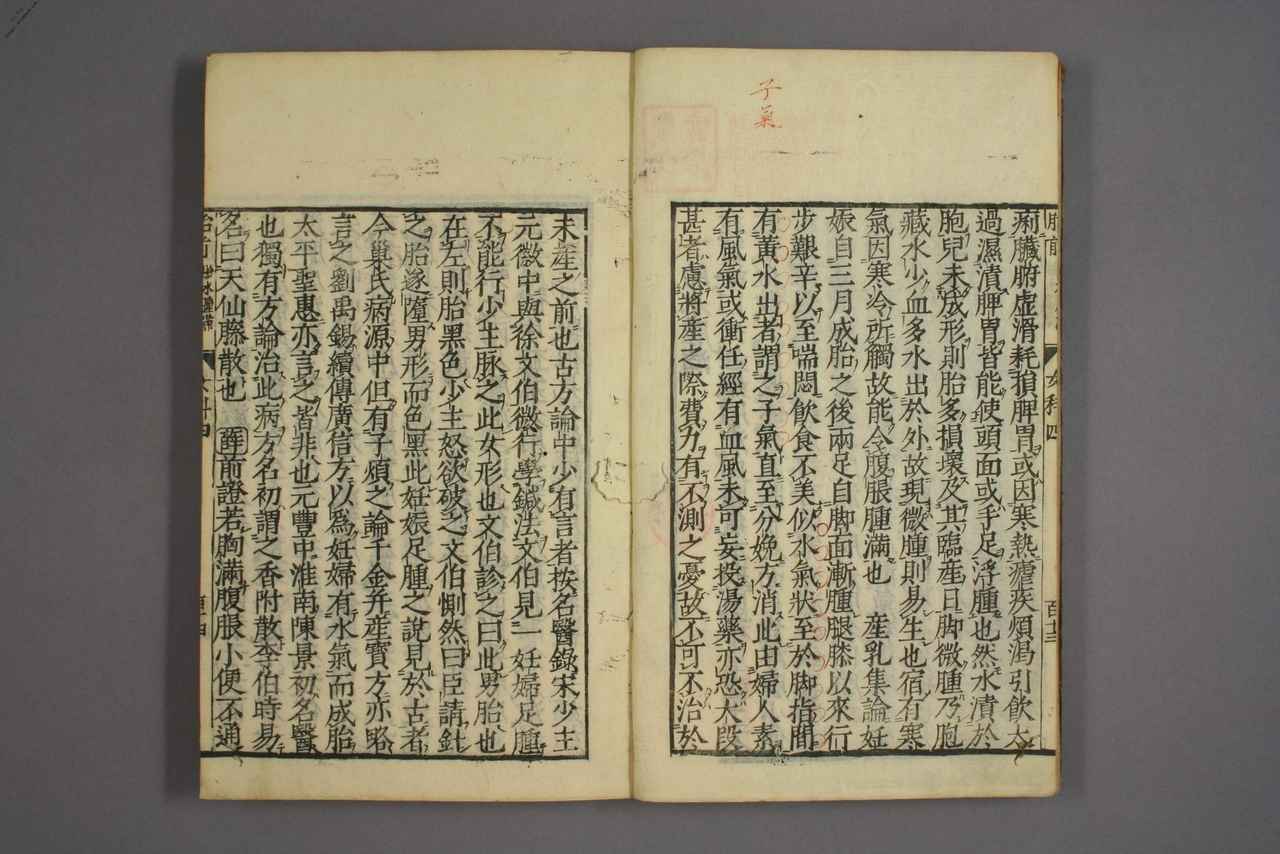 子氣
痢臟腑虛滑耗損脾胃或因寒熱瘧疾煩渴引飲太
過濕漬脾胃皆能使頭面或手足浮腫也然水漬於
胞兒未成形則胎多損壞及其臨産日脚微腫乃胞
藏水少血多水出於外故現微腫則易生也宿有寒
氣因寒冷所觸故能令腹脹腫滿也 産乳集論妊
娠自三月成胎之後兩足自脚面漸腫腿膝以來行
步艱辛以至喘悶飲食不美似水氣狀至於脚指間
有黃水出者謂之子氣直至分娩方消此由婦人素
有風氣或衝任經有血風未可妄投湯藥亦恐大段
甚者慮將産之際費力有不測之憂故不可不治於
女科四
未産之前也古方論中少有言者按名醫錄宋少主
元徽中與徐文伯微行學鍼法文伯見一妊婦足腫
不能行少主脉之此女形也文伯診之曰此男胎也
在左則胎黑色少主怒欲破之文伯惻然曰臣請針
之胎遂墮男形而色黑此妊娠足腫之說見於古者
今巢氏病源中但有子煩之論千金并産寶方亦略
言之劉禹錫續傳廣信方以爲妊婦有水氣而成胎
太平聖惠亦言之皆非也元豐中淮南陳景初名醫
也獨有方論治此病方名初謂之香附散李伯時易
名曰天仙藤散也 薛前證若胸滿腹脹小便不通